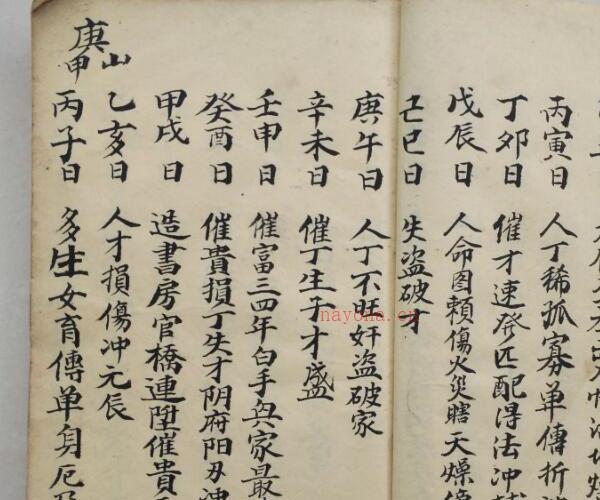 丙寅日 人丁稀孤寡单傳折
丁夘日 催才速發匹配得法冲
戊辰日 人命图賴傷火災瞎天燥
己巳日 失盗破才
庚午日 人丁不旺奸盗破家
辛未日 催丁生子才盛
壬申日 催富三四年白手興家最
癸酉日 催貴損丁失才阴府阳刃冲
甲戌日 造書房官橋連陞催貴
乙亥日 人才損傷冲元辰
丙子日 多生女育傳单身厄
庚甲山
nayona.cn